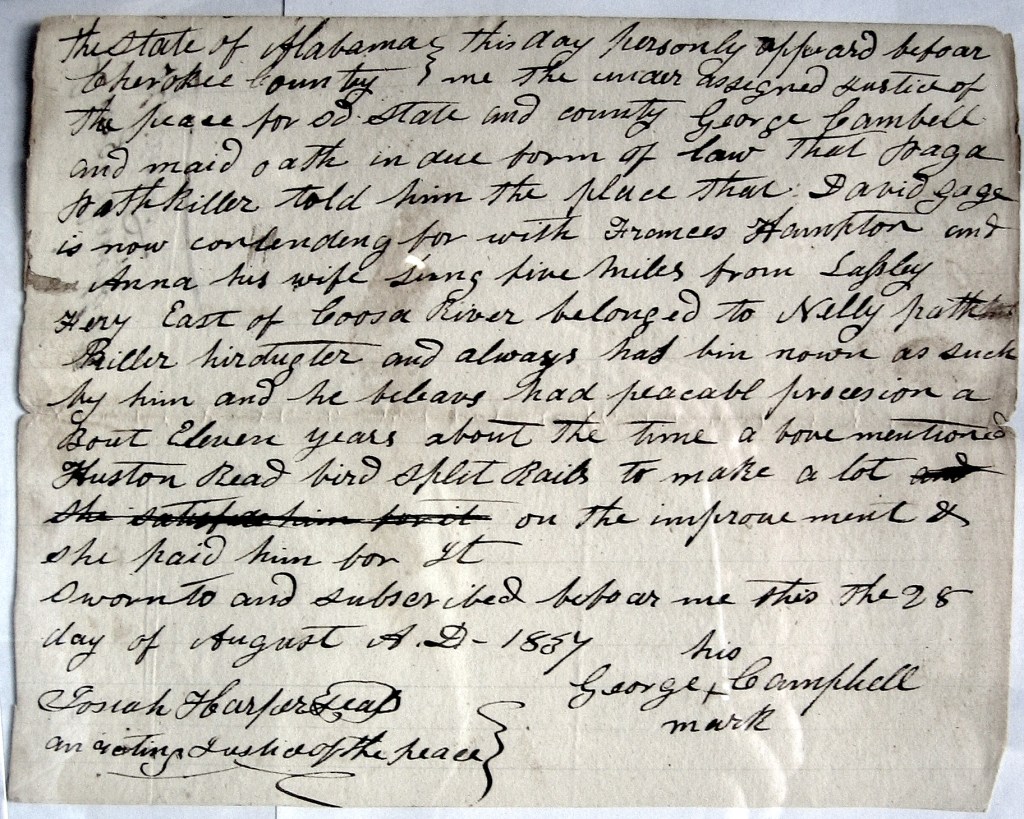 The State of Alabama } this day personly appeard befoar
Cherokee County } me the under assigned Justice of
the peace for sd State and county George Cambell
and maid oath in due form of law that Waga
PathKiller told him the place that David gage
is now contending for with Frances Hampton and
Anna his wife liing five miles from Lassley
Fery East of Coosa River belonged to Nelly path
Killer hirdugter and always had bin nown as such
by him and he beleavs had peacabl procesion a
Bout Eleven years about the time a bove mentioned
Huston Read bird split Rails to make a lot and
she satisfide him for it on the improve ment &
she paid him for yt
Sworn to and subscribed befoar me this the 28
day of August A.D - 1837
his
George x Campbell
mark
Josiah Harper Seal
an acting Justice of the peace }